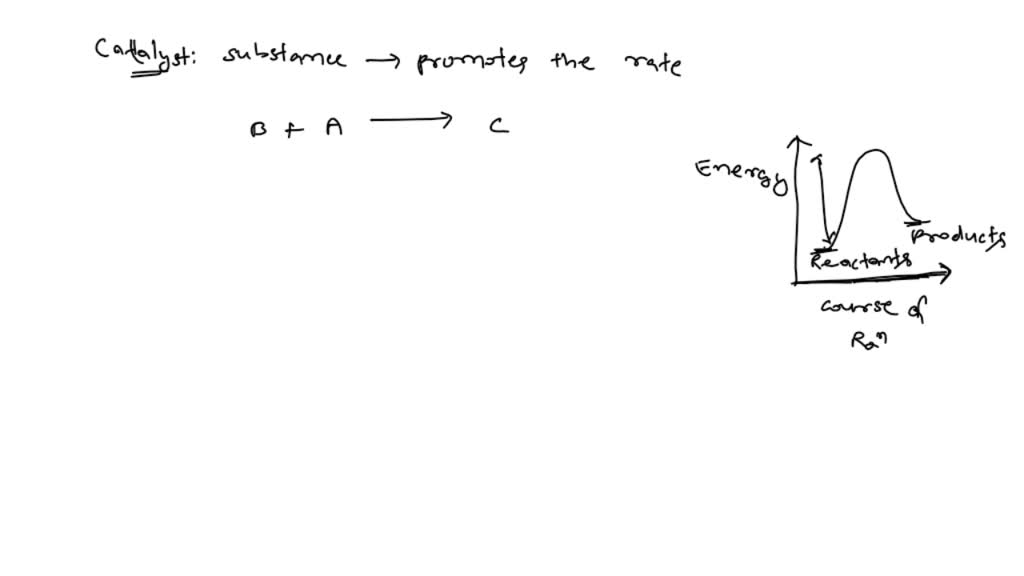 Catalyst: substance → promotes the rate
B + A ⟶ C
Energy
Products
Reactants
course of
Rxⁿ